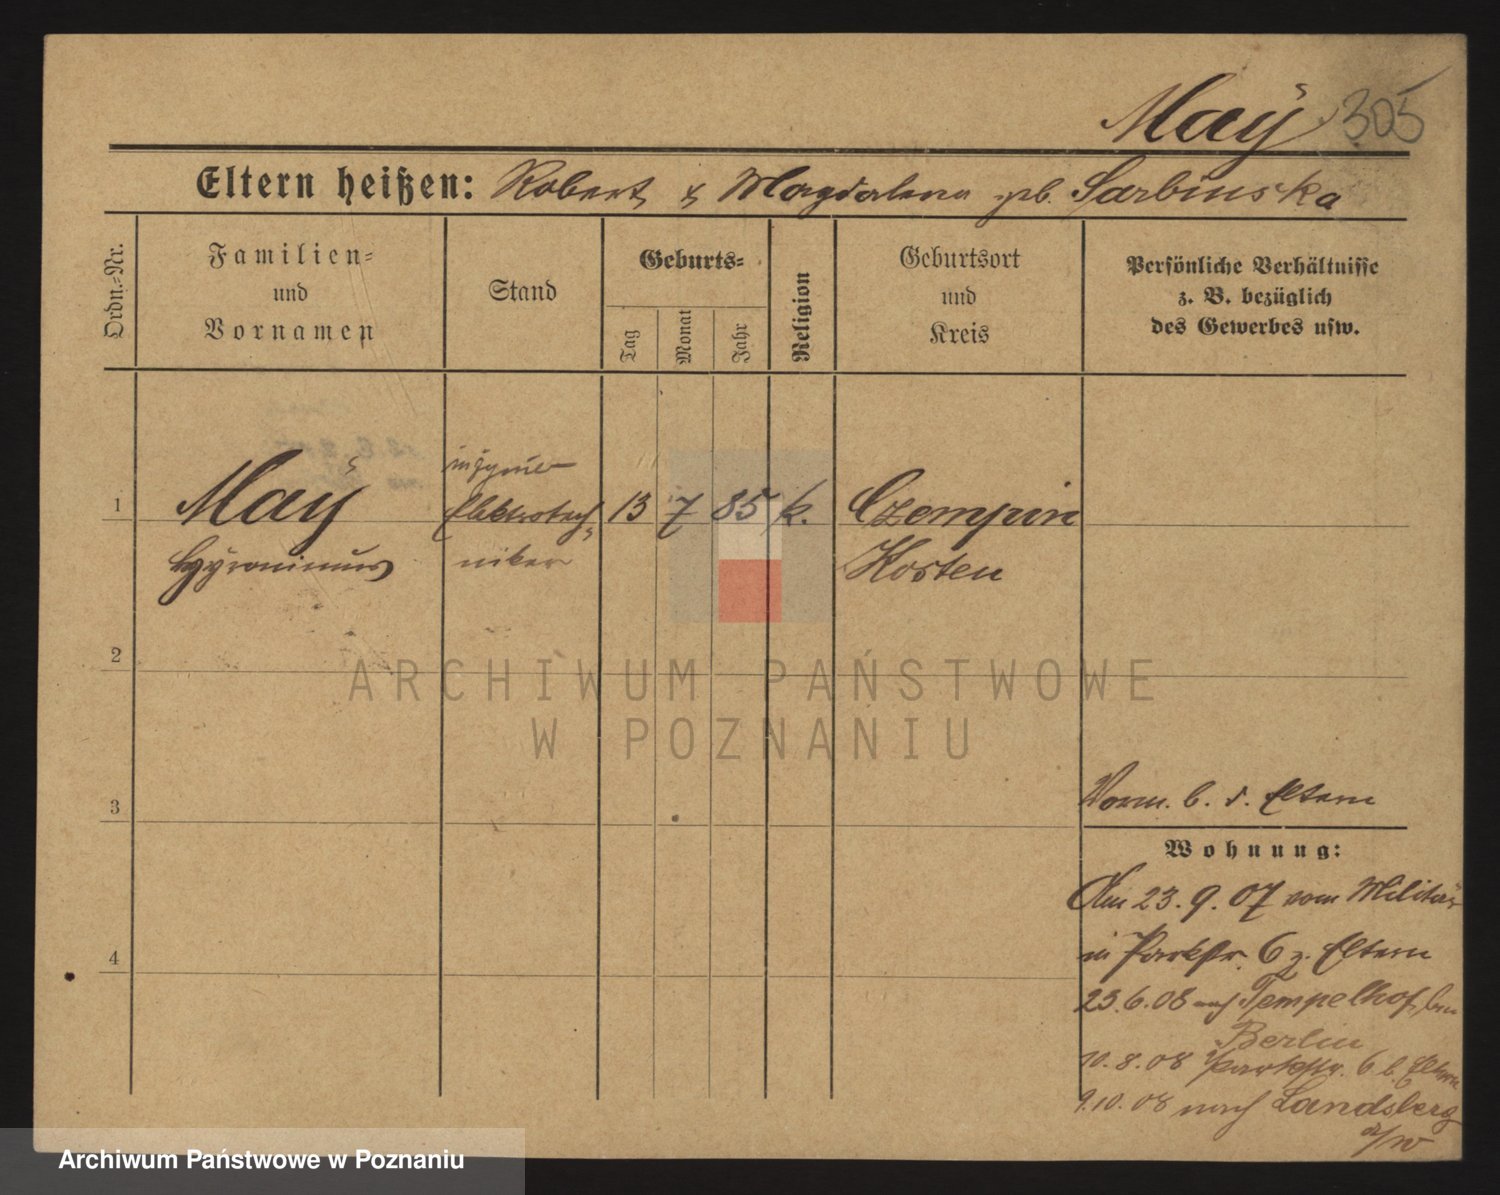 Maÿ 305
Eltern heißen: Robert & Magdalena geb. Sarbinska
Ordn.-Nr.
Familien-
und
Vornamen
Stand
Geburts-
Tag
Monat
Jahr
Religion
Geburtsort
und
Kreis
Persönliche Verhältnisse
z. B. bezüglich
des Gewerbes usw.
1
Maÿ
Elektrotech-
niker
13 7 85 k.
Czempin
Kosten
2
3
4
Vorm. b. d. Eltern
Wohnung:
Am 23.9.07 vom Militär
in Parkstr. 6 z. Eltern
23.6.08 nach Tempelhof
Berlin
10.8.08 Parkstr. 6 b. Eltern
9.10.08 nach Landsberg
a/W
ARCHIWUM PAŃSTWOWE
W POZNANIU
Archiwum Państwowe w Poznaniu